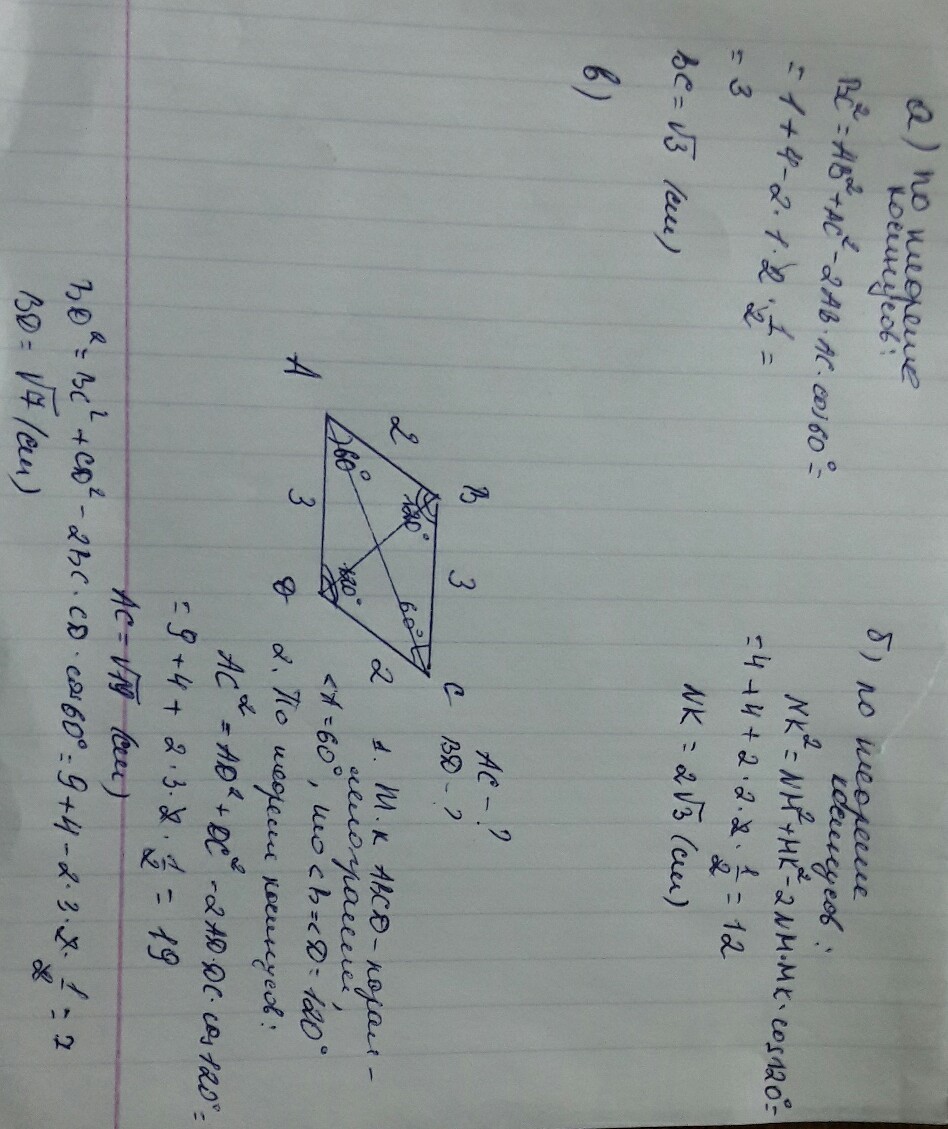 а) по теореме
косинусов:
BC² = AB² + AC² - 2AB · AC · cos60° =
= 1 + 4 - 2 · 1 · 2 · 1/2 =
= 3
BC = √3 (см)
б) по теореме
косинусов:
NK² = NM² + MK² - 2NM · MK · cos120° =
= 4 + 4 + 2 · 2 · 2 · 1/2 = 12
NK = 2√3 (см)
в)
AC - ?
BD - ?
B 3 C
2 120° 60° 2
60° 120°
A 3 D
1. Т.к ABCD - парал-
лелограмм,
<A = 60°, то <B = <D = 120°
2. По теореме косинусов:
AC² = AD² + DC² - 2AD · DC · cos120° =
= 9 + 4 + 2 · 3 · 2 · 1/2 = 19
AC = √19 (см)
BD² = BC² + CD² - 2BC · CD · cos60° = 9 + 4 - 2 · 3 · 2 · 1/2 = 7
BD = √7 (см)